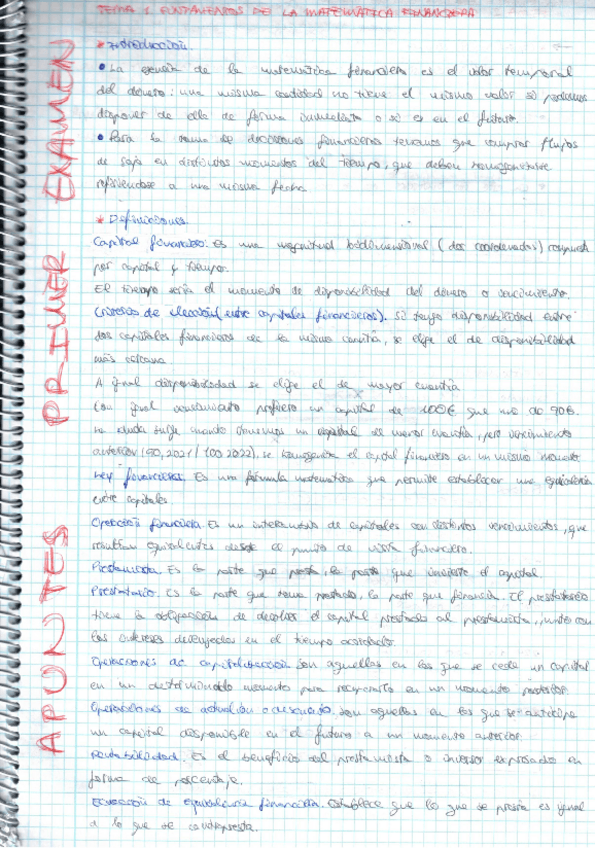 TEMA 1 FUNDAMENTOS DE LA MATEMÁTICA FINANCIERA
* Introducción.
• La esencia de la matemática financiera es el valor temporal
del dinero: una misma cantidad no tiene el mismo valor si podemos
disponer de ella de forma inmediata o si es en el futuro.
• Para la toma de decisiones financieras tenemos que comprar flujos
de caja en distintos momentos del tiempo, que deben homogeneizarse
refiriéndose a una misma fecha
* Definiciones.
Capital financiero. Es una magnitud bidimensional (dos coordenadas) compuesta
por capital y tiempo.
El tiempo sería el momento de disponibilidad del dinero o vencimiento.
Criterios de elección (entre capitales financieros). Si tengo disponibilidad entre
dos capitales financieros de la misma cuantía, se elige el de disponibilidad
más cercana.
A igual disponibilidad se elige el de mayor cuantía
Con igual vencimiento prefiero un capital de 100€ que uno de 90€.
La duda surge cuando tenemos un capital de menor cuantía, pero vencimiento
anterior (90, 2021 / 100 2022). Se homogeniza el capital financiero en un mismo momento
Ley financiera. Es una fórmula matemática que permite establecer una equivalencia
entre capitales.
Operación financiera. Es un intercambio de capitales con distintos vencimientos, que
resultan equivalentes desde el punto de vista financiero.
Prestamista. Es la parte que presta, la parte que invierte el capital.
Prestatario. Es la parte que toma prestado, la parte que financia. El prestatario
tiene la obligación de devolver el capital prestado al prestamista, junto con
los intereses devengados en el tiempo acordado.
Operaciones de capitalización. Son aquellas en las que se cede un capital
en un determinado momento para recuperarlo en un momento posterior.
Operaciones de actualización o descuento. Son aquellas en las que se anticipa
un capital disponible en el futuro a un momento anterior
Rentabilidad. Es el beneficio del prestamista o inversor expresado en
forma de porcentaje.
Ecuación de equivalencia financiera. Establece que lo que se presta es igual
a lo que se contrapresta.
APUNTES PRIMER EXAMEN